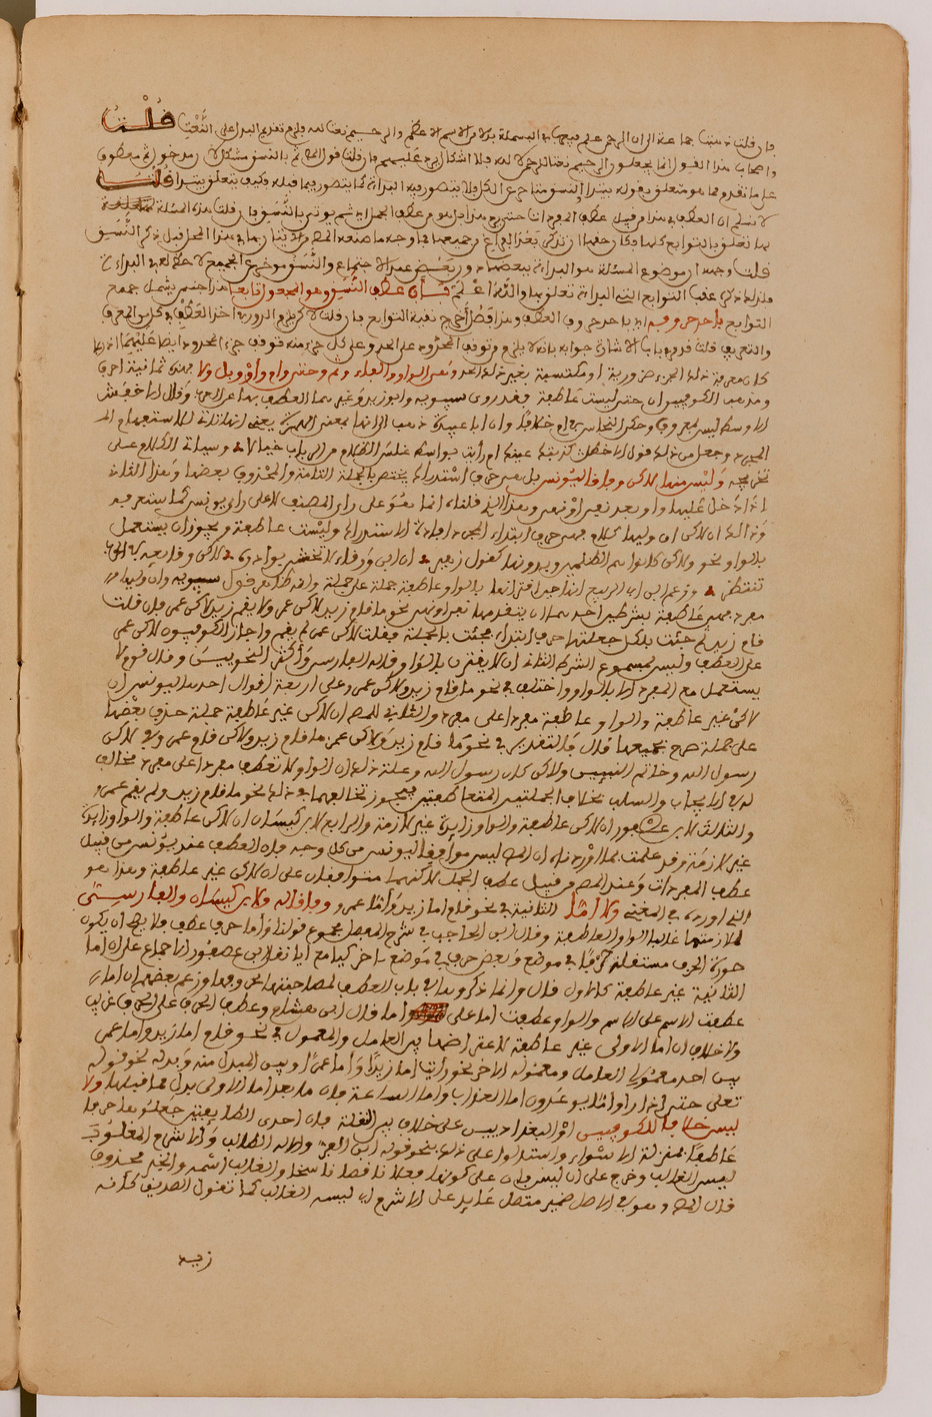 فإن قلت ذهب جماعة إلى أن الرحمن علم فيعرب في البسملة بدلا من الاسم الأعظم والرحيم نعتا له فيلزم تقديم البدل على النعت قلت
وأصحاب هذا القول إنما يجعلون الرحيم نعتا للرحمن لا لله فلا إشكال عليهم فإن قلت قول المص ثم بالنسق مشكل لأن مدخول ثم معطوف
على ما تقدم مما هو متعلق بقوله يبدأ النسق متأخر عن الكل فلا يتصور فيه البداءة كما يتصور فيما قبله وكيف يتعلق بيبدأ قلت
لا نسلم أن العطف في هذا من قبيل عطف المفردات حتى بل هو من عطف الجمل أي ثم يؤتى بالنسق فإن قلت هذه المسئلة
لها تعلق بالتوابع كلها فكان حقها أن تذكر بعد الفراغ من جميعها فما وجه ما صنعه المص من الإتيان بها في هذا المحل قبل ذكر النسق
قلت وجهه أن موضوع المسئلة هو البداءة ببعضها والنسق مؤخر عن الجميع لا حظ له في البداءة
فلذلك ذكر عقب التوابع التي البداءة تعلق بها والله أعلم عطف النسق وهو المجعول تابعا هذا جنس يشمل جميع
التوابع بأحد حروفه أي بأحد حروف العطف وهذا فصل أخرج بقية التوابع فإن قلت لا الدور أخذ العطف في كل من المعرف
والتعريف قلت قدم في باب الإشارة جوابه بأنه لا يلزم من توقف المحدود على الحد وعلى كل جزء منه توقف جزء المحدود أيضا عليهما
كان معرفة ذلك الجزء ضرورية أو مكتسبة بغير ذلك الحد وهي الواو والفاء وثم وحتى وأم وأو وبل ولا فهذه ثمانية أحرف
ومذهب الكوفيين أن حتى ليست عاطفة فقد روى سيبويه وأبو زيد وغيرهما العطف بها عن العرب وقال الأخفش
الأوسط ليس بمعروف وحكى النحاس في أم خلافا وأن أبا عبيدة ذهب إلى أنها بمعنى الهمزة يعني أنها ثابتة للاستفهام
المجرد وجعل من ذلك قول الأخطل كذبتك عينك أم رأيت بواسط غلس الظلام من الرباب خيالا وسيأتي الكلام على
تخريجه وليس منها لكن وفاقا ليونس بل هي حرف استدراك يختص بالجملة التامة والمحذوف بعضها وهذا الثاني
إذا دخل عليها واو بعد نفي أو نهي وهذا الذي قلناه إنما هو على رأي المصنف لا على رأي يونس كما ستعرفه
وذلك أن لكن إن وليها كلام فهي حرف ابتداء لمجرد إفادة الاستدراك وليست عاطفة ويجوز أن يستعمل
بالواو نحو ولكن كانوا هم الظالمين وبدونها كقول زهير إن ابن ورقاء لا تخشى بوادره لكن وقائعه في الحرب
تنتظر وزعم ابن أبي الربيع أنها حين اقترانها بالواو عاطفة جملة على جملة وأنه ظاهر قول سيبويه وإن وليها
مفرد فهي عاطفة بشرطين أحدهما أن يتقدمها نفي أو نهي نحو ما قام زيد لكن عمرو ولا يقم زيد لكن عمرو فإن قلت
قام زيد ثم جئت بلكن جعلتها حرف ابتداء فجئت بالجملة فقلت لكن عمرو لم يقم وأجاز الكوفيون لكن عمرو
على العطف وليس بمسموع الشرط الثاني أن لا يقترن بالواو قاله الفارسي وأكثر النحويين وقال قوم لا
يستعمل مع المفرد إلا بالواو واختلف في نحو ما قام زيد ولكن عمرو على أربعة أقوال أحدها ليونس أن
لكن غير عاطفة والواو عاطفة مفردا على مفرد والثاني للمص أن لكن غير عاطفة جملة حذف بعضها
على جملة صرح بجميعها قال فالتقدير في نحو ما قام زيد ولكن عمرو ما قام زيد ولكن قام عمرو وفي لكن
رسول الله وخاتم النبيين ولكن كان رسول الله وعلة ذلك أن الواو لا تعطف مفردا على مفرد مخالف
له في الإيجاب والسلب بخلاف الجملتين المتعاطفتين فيجوز تخالفهما في ذلك نحو ما قام زيد ولم يقم عمرو
والثالث لابن عصفور أن لكن عاطفة والواو زائدة غير لازمة والرابع لابن كيسان أن لكن عاطفة والواو زائدة
غير لازمة وقد علمت بما أوردناه أن المص ليس موافقا ليونس من كل وجه فإن العطف عند يونس من قبيل
عطف المفردات وعند المص من قبيل عطف الجمل لكنهما متوافقان على أن لكن غير عاطفة وهذا هو
الذي أورده في المغني ولا إما الثانية في نحو قام إما زيد وإما عمرو وفاقا له ولابن كيسان والفارسي
لملازمتها غالبا الواو العاطفة وقال ابن الحاجب في شرح المفصل مجموع قولنا وإما حرف عطف ولا يبعد أن يكون
صورة الحرف مستقلة حرفا في موضع وبعض حرف في موضع آخر كيا مع أيا نقل ابن عصفور الإجماع على أن إما
الثانية غير عاطفة كالأول قال وإنما ذكروها في باب العطف لمصاحبتها لحرفها وزعم بعضهم أن إما
عطفت الاسم على الاسم والواو عطفت إما على إما قال ابن هشام وعطف الحرف على الحرف غريب
ولا خلاف أن إما الأولى غير عاطفة لاعتراضها بين العامل والمعمول في نحو قام إما زيد وإما عمرو
بين أحد معمولي العامل ومعموله الآخر نحو رأيت إما زيدا وإما عمرا وبين المبدل منه وبدله نحو قوله
تعالى حتى إذا رأوا ما يوعدون إما العذاب وإما الساعة فإن ما بعد إما الأولى بدل مما قبلها ولا
ليس خلافا للكوفيين أو البغداديين على خلاف بين النقلة فإن إحدى الطائفتين جعلوها حرفا
عاطفا بمنزلة لا سواء واستدلوا على ذلك بنحو قوله أين المفر والإله الطالب والأشرم المغلوب
ليس الغالب وخرج على أن ليس باق على كونها فعلا ناقصا ناسخا والغالب اسمه والخبر محذوف
قال المص وهو في الأصل ضمير متصل عائد على الأشرم أي ليسه الغالب كما تقول الصديق كانه
زيد